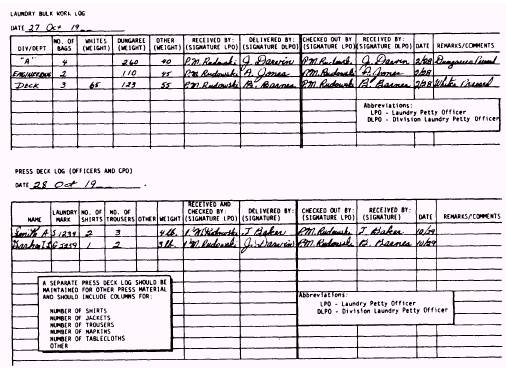 LAUNDRY BULK WORK LOG
DATE 27 Oct 19
DIV/DEPT NO. OF BAGS WHITES (WEIGHT) DUNGAREE (WEIGHT) OTHER (WEIGHT) RECEIVED BY: (SIGNATURE LPO) DELIVERED BY: (SIGNATURE DLPO) CHECKED OUT BY (SIGNATURE LPO) RECEIVED BY: (SIGNATURE DLPO) DATE REMARKS/COMMENTS
"A" 4 260 40 P.M. Rudowski J. Darwin P.M. Rudowski J. Darwin 2/28 Dungarees Pressed
ENGINEERING 2 110 45 P.M. Rudowski A. Jones P.M. Rudowski A. Jones 2/28
DECK 3 65 123 55 P.M. Rudowski B. Barnes P.M. Rudowski B. Barnes 2/28 Whites Pressed
Abbreviations:
LPO - Laundry Petty Officer
DLPO - Division Laundry Petty Officer
PRESS DECK LOG (OFFICERS AND CPO)
DATE 28 Oct 19
NAME LAUNDRY MARK NO. OF SHIRTS NO. OF TROUSERS OTHER WEIGHT RECEIVED AND CHECKED BY: (SIGNATURE LPO) DELIVERED BY: (SIGNATURE) CHECKED OUT BY: (SIGNATURE LPO) RECEIVED BY: (SIGNATURE) DATE REMARKS/COMMENTS
Smith A S 1234 2 3 4 lb. P.M. Rudowski J. Baker P.M. Rudowski J. Baker 10/29
1 2 3 lb. P.M. Rudowski J. Darwin P.M. Rudowski B. Barnes 10/29
A SEPARATE PRESS DECK LOG SHOULD BE
MAINTAINED FOR OTHER PRESS MATERIAL
AND SHOULD INCLUDE COLUMNS FOR:
NUMBER OF SHIRTS
NUMBER OF JACKETS
NUMBER OF TROUSERS
NUMBER OF NAPKINS
NUMBER OF TABLECLOTHS
OTHER
Abbreviations:
LPO - Laundry Petty Officer
DLPO - Division Laundry Petty Officer